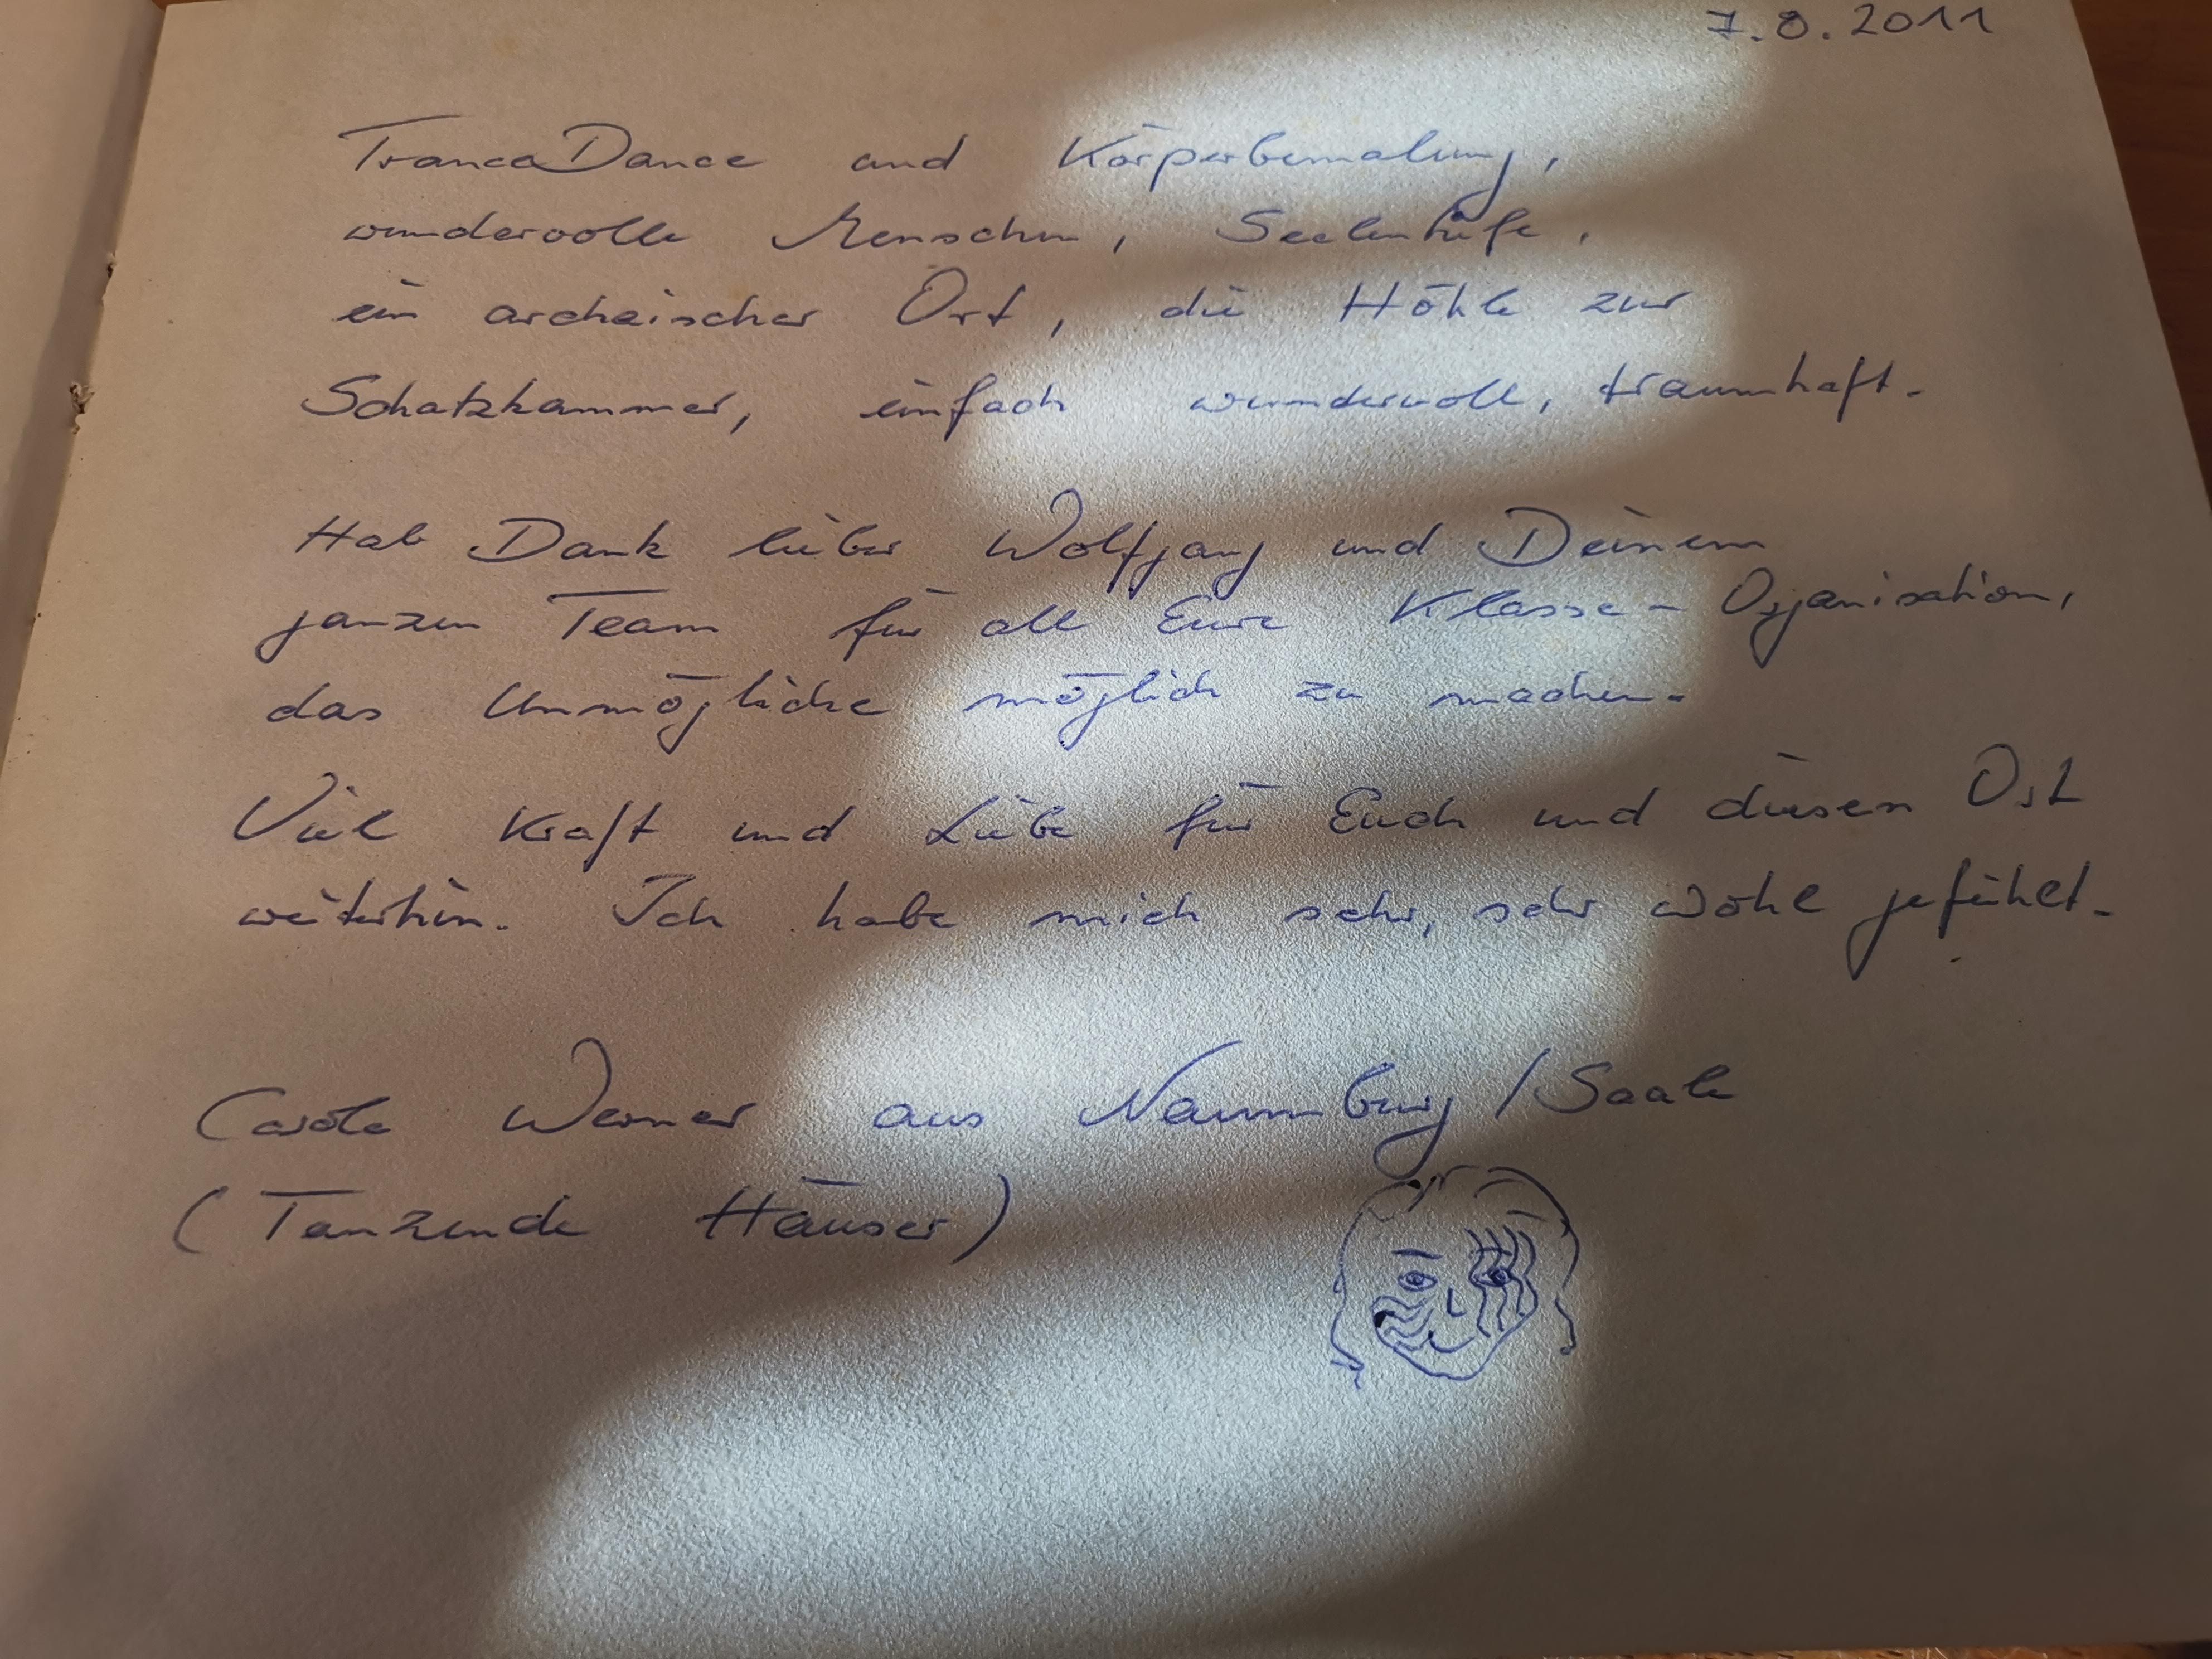 7.8.2011
TranceDance und Körperbemalung,
wundervolle Menschen, Seelentiefe,
ein archaischer Ort, die Höhle zur
Schatzkammer, einfach wundervoll, traumhaft.
Hab Dank lieber Wolfgang und Deinem
ganzen Team für all Eure Klasse-Organisation,
das Unmögliche möglich zu machen.
Viel Kraft und Liebe für Euch und diesen Ort
weiterhin. Ich habe mich sehr, sehr wohl gefühlt.
Carola Werner aus Naumburg / Saale
(Tanzende Häuser)